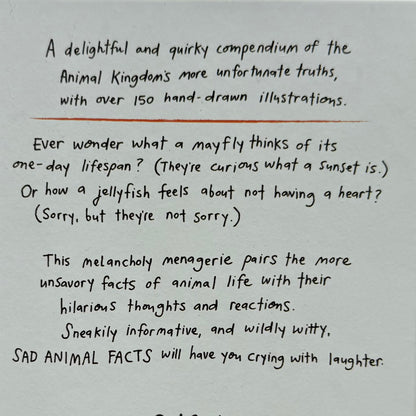 A delightful and quirky compendium of the
Animal Kingdom's more unfortunate truths,
with over 150 hand-drawn illustrations.
Ever wonder what a mayfly thinks of its
one-day lifespan? (They're curious what a sunset is.)
Or how a jellyfish feels about not having a heart?
(Sorry, but they're not sorry.)
This melancholy menagerie pairs the more
unsavory facts of animal life with their
hilarious thoughts and reactions.
Sneakily informative, and wildly witty,
SAD ANIMAL FACTS will have you crying with laughter.